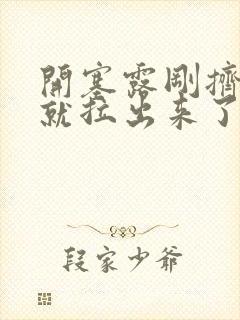 開塞露剛擠
就拉出来了
段家少爺